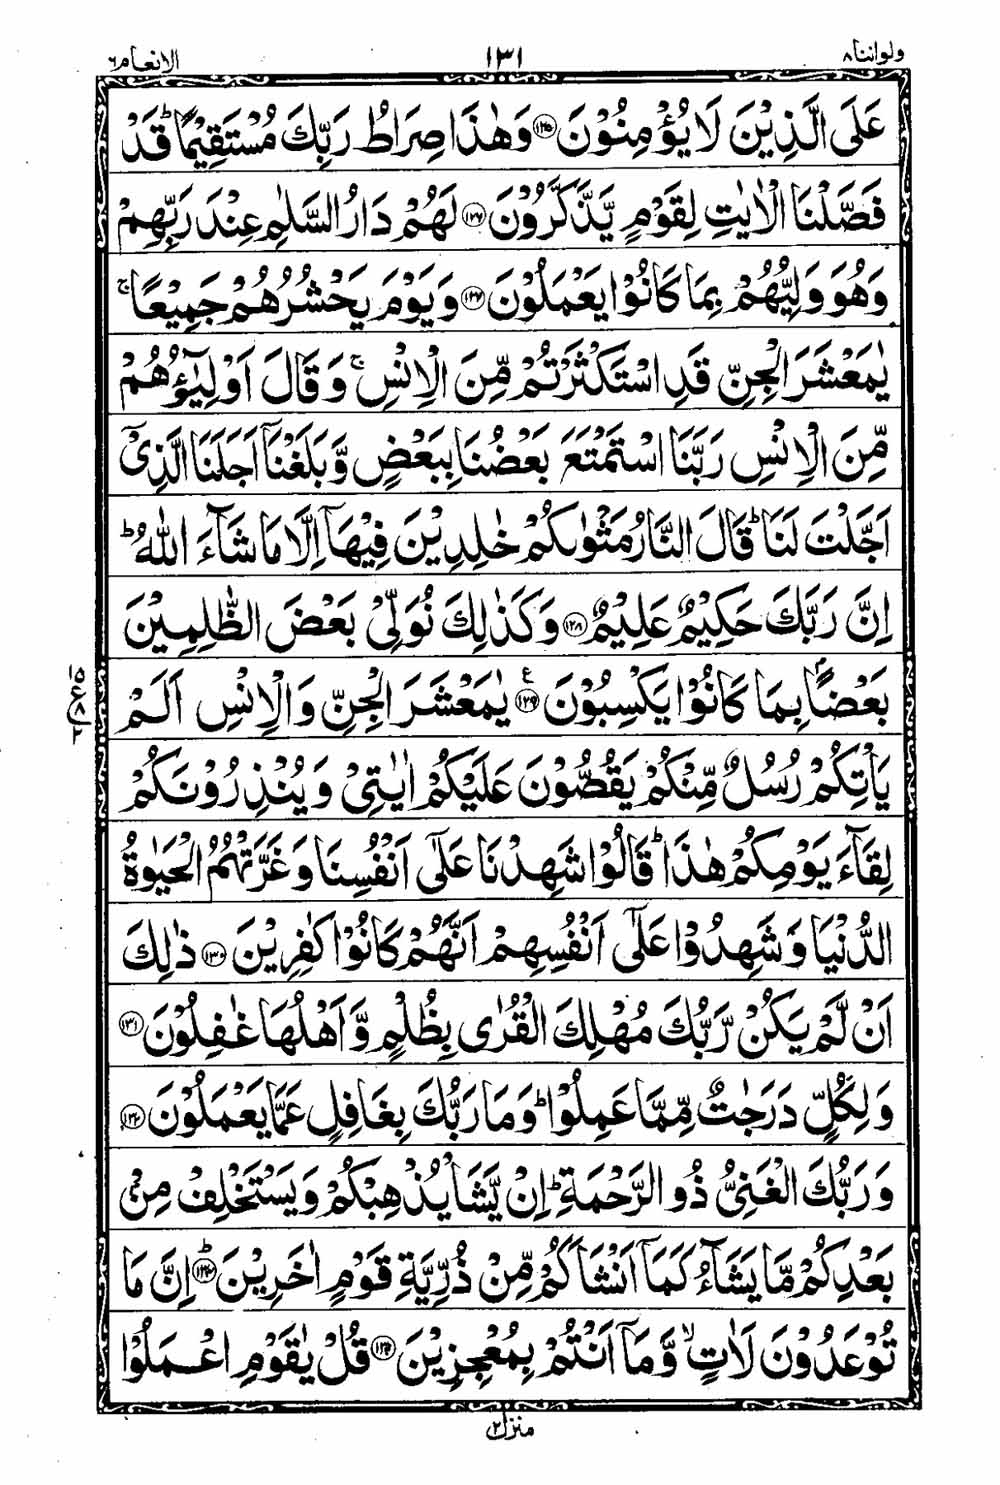 ولواننا ٨ ١٣١ الانعام ٦
عَلَى الَّذِيْنَ لَا يُؤْمِنُوْنَ ﴿١٢٥﴾ وَهٰذَا صِرَاطُ رَبِّكَ مُسْتَقِيْمًا ؕ قَدْ
فَصَّلْنَا الْاٰيٰتِ لِقَوْمٍ يَّذَّكَّرُوْنَ ﴿١٢٦﴾ لَهُمْ دَارُ السَّلٰمِ عِنْدَ رَبِّهِمْ
وَهُوَ وَلِيُّهُمْ بِمَا كَانُوْا يَعْمَلُوْنَ ﴿١٢٧﴾ وَيَوْمَ يَحْشُرُهُمْ جَمِيْعًا ۚ
يٰمَعْشَرَ الْجِنِّ قَدِ اسْتَكْثَرْتُمْ مِّنَ الْاِنْسِ ۚ وَقَالَ اَوْلِيٰٓـؤُهُمْ
مِّنَ الْاِنْسِ رَبَّنَا اسْتَمْتَعَ بَعْضُنَا بِبَعْضٍ وَّبَلَغْنَاۤ اَجَلَنَا الَّذِيْۤ
اَجَّلْتَ لَنَا ؕ قَالَ النَّارُ مَثْوٰىكُمْ خٰلِدِيْنَ فِيْهَاۤ اِلَّا مَا شَآءَ اللّٰهُ ؕ
اِنَّ رَبَّكَ حَكِيْمٌ عَلِيْمٌ ﴿١٢٨﴾ وَكَذٰلِكَ نُوَلِّيْ بَعْضَ الظّٰلِمِيْنَ
بَعْضًۢا بِمَا كَانُوْا يَكْسِبُوْنَ ﴿١٢٩﴾ ع يٰمَعْشَرَ الْجِنِّ وَالْاِنْسِ اَلَمْ
١٥ ع ٨ ٢
يَاْتِكُمْ رُسُلٌ مِّنْكُمْ يَقُصُّوْنَ عَلَيْكُمْ اٰيٰتِيْ وَيُنْذِرُوْنَكُمْ
لِقَآءَ يَوْمِكُمْ هٰذَا ؕ قَالُوْا شَهِدْنَا عَلٰۤى اَنْفُسِنَا وَغَرَّتْهُمُ الْحَيٰوةُ
الدُّنْيَا وَشَهِدُوْا عَلٰۤى اَنْفُسِهِمْ اَنَّهُمْ كَانُوْا كٰفِرِيْنَ ﴿١٣٠﴾ ذٰلِكَ
اَنْ لَّمْ يَكُنْ رَّبُّكَ مُهْلِكَ الْقُرٰى بِظُلْمٍ وَّاَهْلُهَا غٰفِلُوْنَ ﴿١٣١﴾
وَلِكُلٍّ دَرَجٰتٌ مِّمَّا عَمِلُوْا ؕ وَمَا رَبُّكَ بِغَافِلٍ عَمَّا يَعْمَلُوْنَ ﴿١٣٢﴾
وَرَبُّكَ الْغَنِيُّ ذُو الرَّحْمَةِ ؕ اِنْ يَّشَاْ يُذْهِبْكُمْ وَيَسْتَخْلِفْ مِنْۢ
بَعْدِكُمْ مَّا يَشَآءُ كَمَاۤ اَنْشَاَكُمْ مِّنْ ذُرِّيَّةِ قَوْمٍ اٰخَرِيْنَ ؕ ﴿١٣٣﴾ اِنَّ مَا
تُوْعَدُوْنَ لَاٰتٍ ۙ وَّمَاۤ اَنْتُمْ بِمُعْجِزِيْنَ ﴿١٣٤﴾ قُلْ يٰقَوْمِ اعْمَلُوْا
منزل ٢